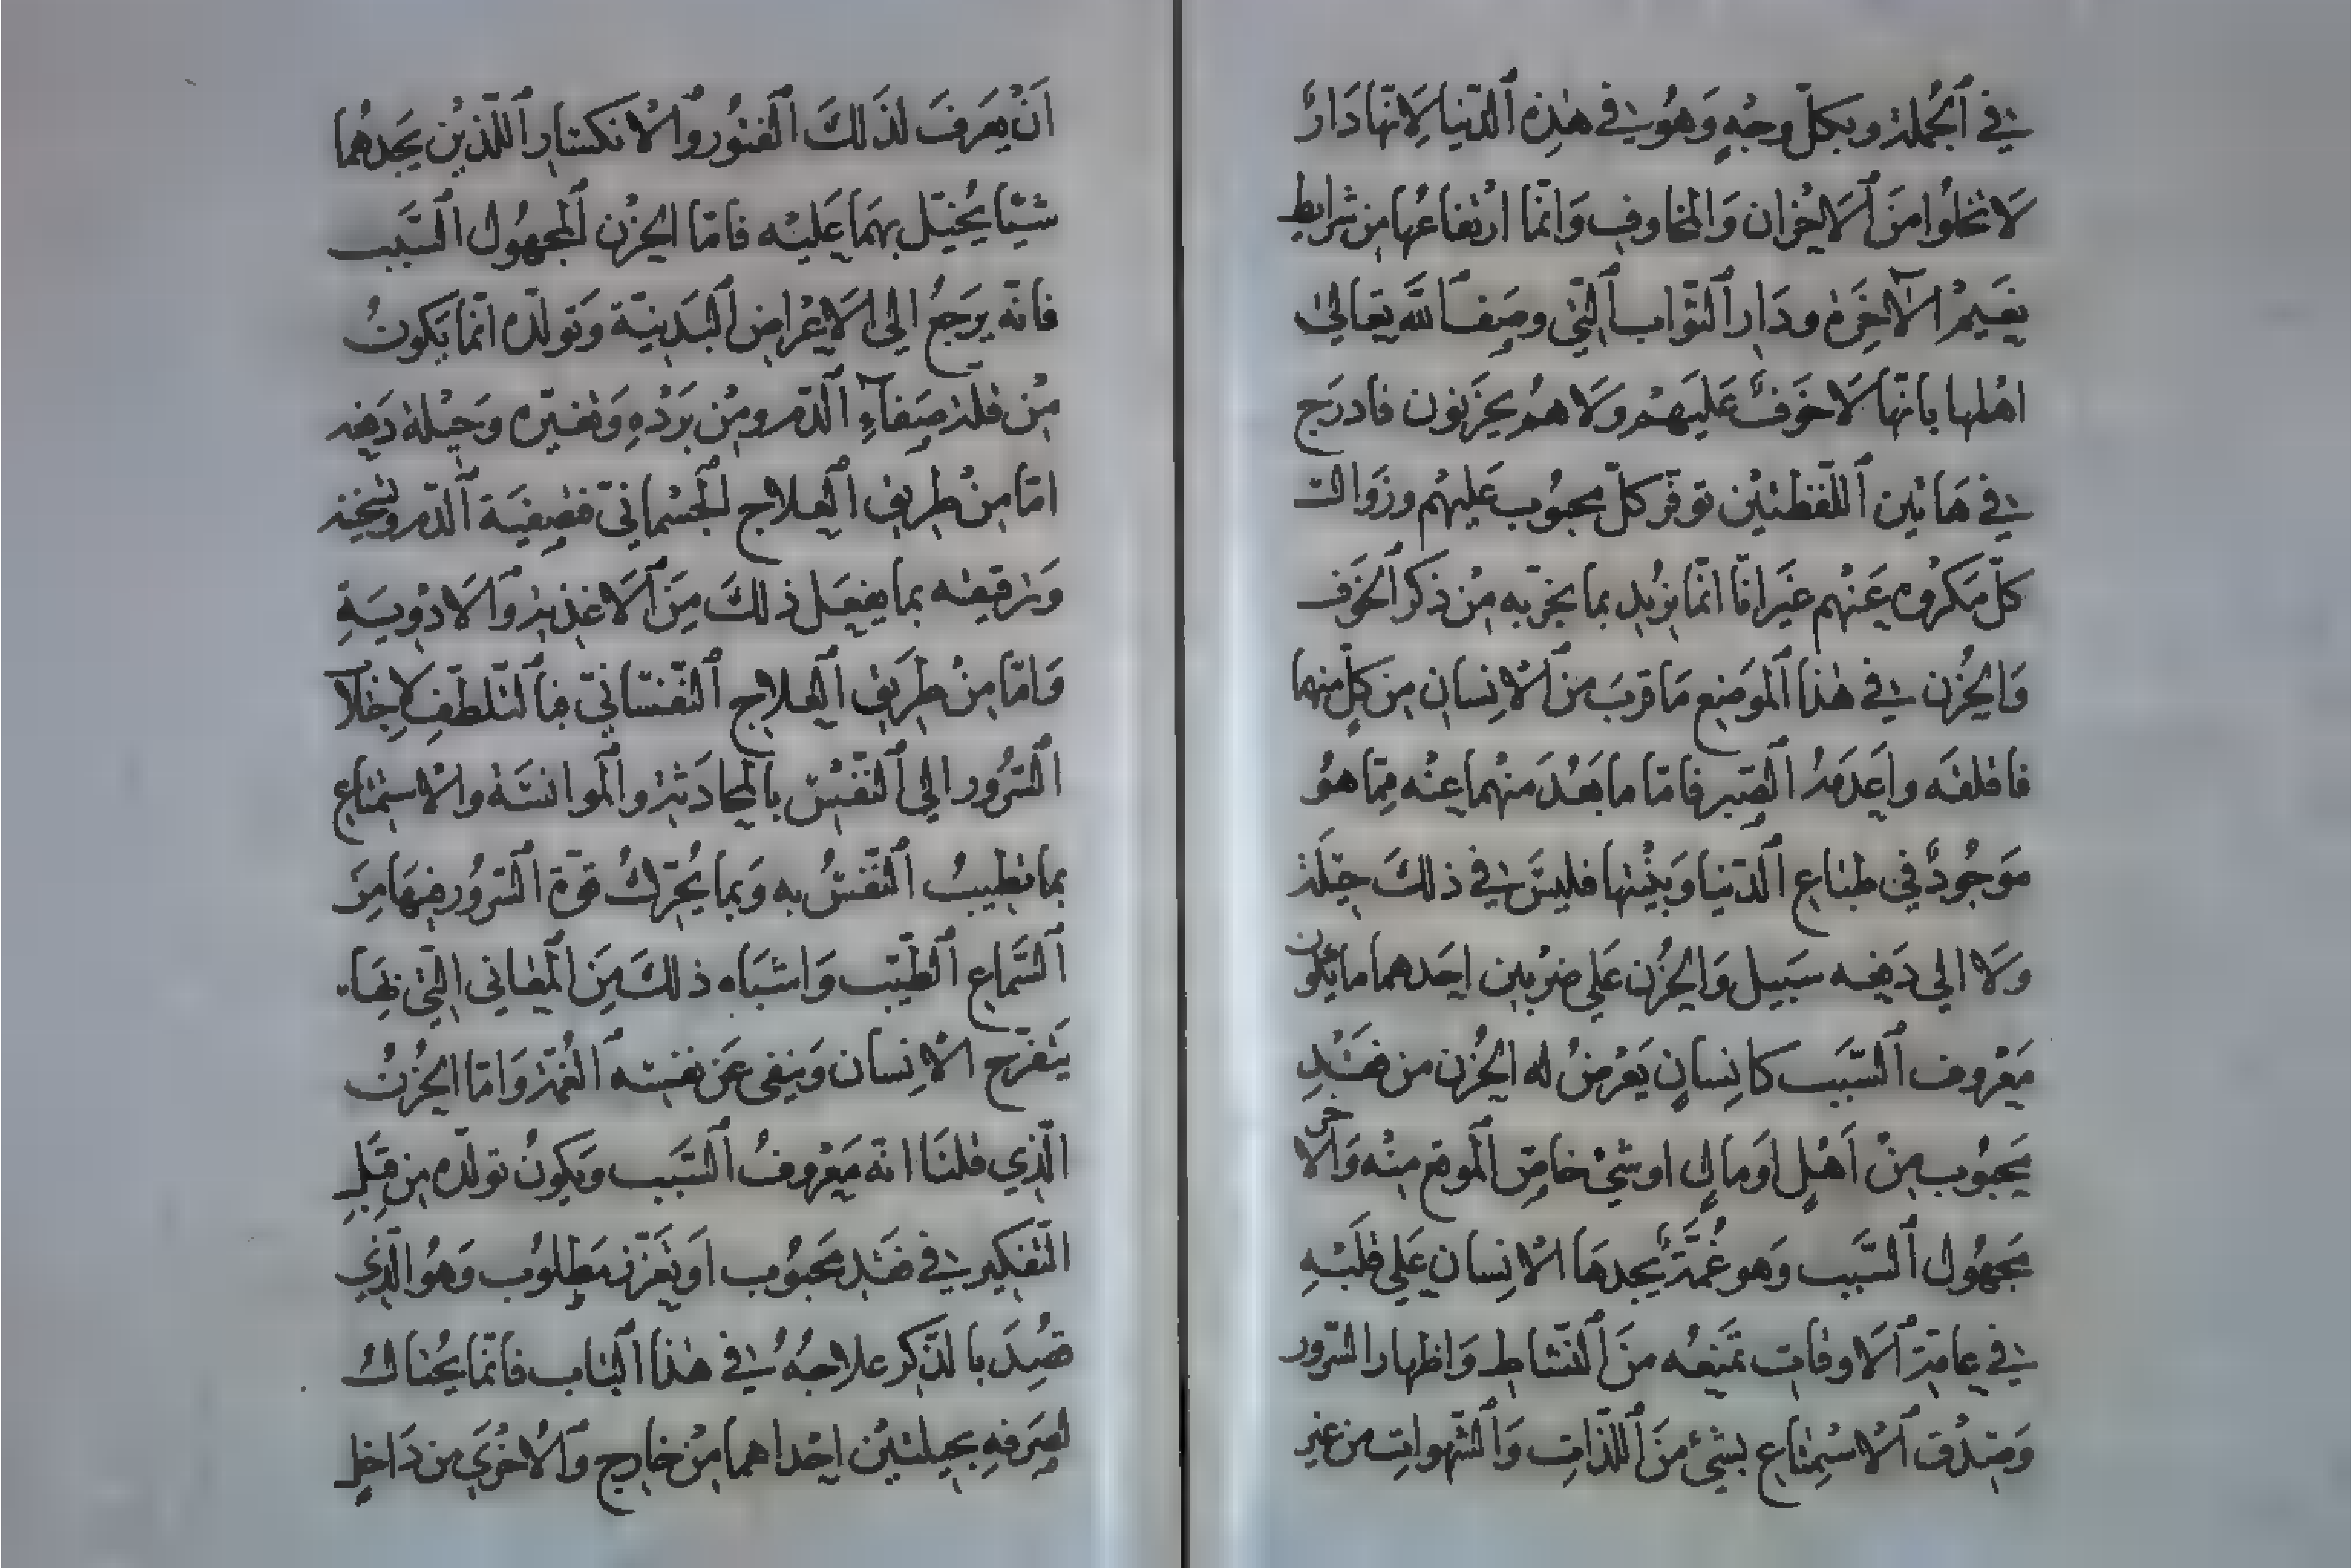 في الجملة وبكلّ وجْهٍ وَهُو في هٰذِه الدّنيا لِانّها دَارٌ
لَا تخلُوا منَ الَاحْزان وَالمخاوف وَانّما ارْتفاعُها من شرايط
نعَيمْ الآخِرَة ودَار الثّواب الّتي وصَفَ اللّه تعَالىٰ
اهْلها بانّها لَا خَوفٌ عَليهمْ ولَا همُ يحزَنون فادرَج
في هَاتين اللّفظتيْن توفّر كلّ محبُوب عَليهْم وزوَال
كلّ مَكرُوه عَنْهم غيَر انّا انّما نرُيد بما نحن به منْ ذكر الخَوف
وَالحُزن في هٰذا الموَضِع مَا قربَ من الْانِسان من كلٍّ منهما
فاقلقَه واَعدَمهُ الصّبر فامّا ما بَعُدَ منهْما عنْه ممّا هوُ
موَجُودٌ في طباع الدّنيا وَبنْيتها فليسَ في ذلكَ حيْلَة
وَلَا الي دَفعه سَبيل وَالحُزن عَلي ضربْين احَدهما ما يكون
مَعْروف السّبَب كانِسانٍ يَعْرضُ له الحُزن من فقْدِ
محَبُوب منْ اَهْلٍ اوَ مالٍ او شيْ خاصّ الموَقع منْه وَالآخر
مجَهُول السّبَب وَهو غُمَّةٌ يجدهَا الانِسان عَلي قلبْهِ
في عامّة الَاوقات تمَنعُه منَ النّشاط وَاظهار السّرور
وَصِدْق الْاستِمْتاع بشَيْء منَ اللّذاتِ وَالشّهواتِ من غير
اَنْ يعَرفَ لذَلكَ الفتوُر والْانكسَار اللّذيْن يجَدهُما
شيْئا يُحيّل بهمَا عَليْه فامّا الحزْن المجهُول السّبَب
فانّه يرَجعُ الي الَاعْراض البدَنيّة وَتولّده انّما يَكونُ
منْ قلّة صَفآءِ الدّم ومنْ بَرْدهِ وَتغيّره وَحيْلة دَفعه
امّا منْ طريق العلاج الجسْمانيّ فتصفيَة الدّم وتسْخينه
وَترْقيقه بما يفعَل ذلكَ مِنَ الَاغذية وَالَادْويَةِ
وَامّا منْ طرَيق العلاج النّفسَانيّ فبالتّلطّفِ لِاِدْخال
السّرُور الي النّفْس بالمحادَثة والموانسَة والْاستِمْتاع
بما تطيبُ النّفسُ به وَبما يُحرّكُ قوّة السّرُور فيهَا منَ
السَّماع الطّيّب وَاشبَاه ذلكَ مِنَ المعَاني الّتي بهَا
يتَفرّج الْانِسان وَينفي عَن نفسه الغُمّة وَامّا الحُزنُ
الّذي قلنَا انّه مَعْروفُ السّبَب وَيكونُ تولّده من قِبَلِ
التّفكير في فقَد محَبوُب اَو تَعَزّز مَطلوُب وَهوُ الّذي
قصُدَ بالذّكر علاجُهُ في هٰذا الباب فانّما يُحتاجُ
لصَرفهِ بحيلتيْن احْداهما منْ خارج وَالْاخْري من دَاخلٍ